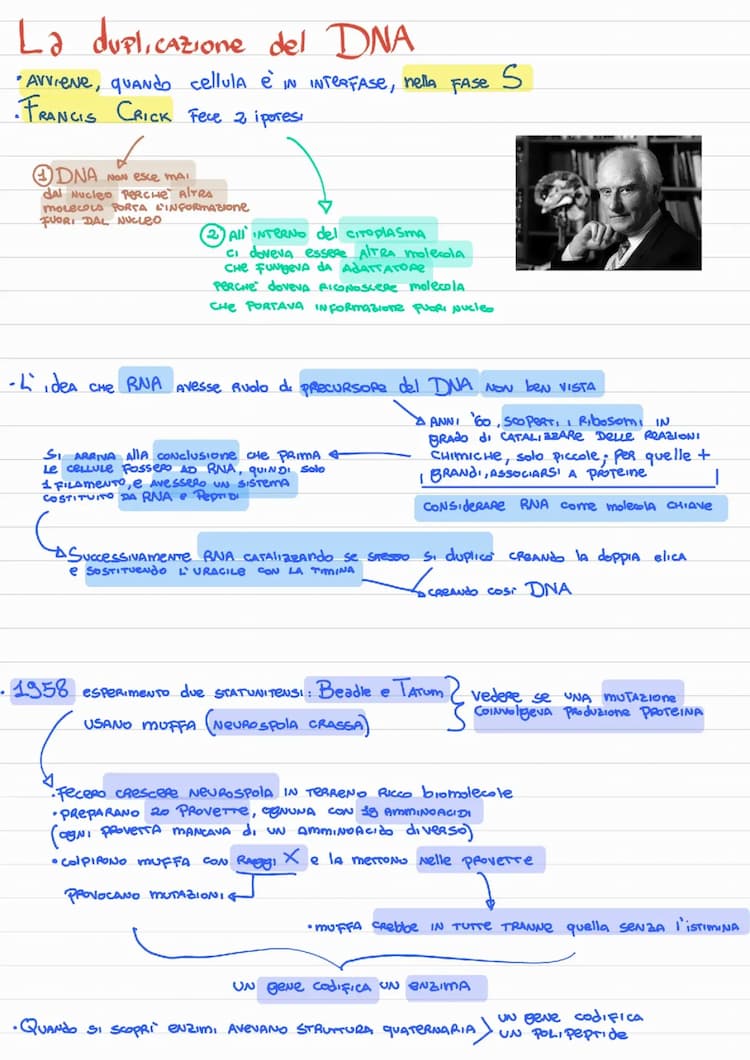 La duplicazione del DNA
• AVVIENE, quando cellula è in interfase, nella fase S
• Francis Crick fece 2 ipotesi
① DNA non esce mai
dal nucleo perchè altra
molecola porta l'informazione
fuori dal nucleo
② All'interno del citoplasma
ci doveva essere altra molecola
che fungeva da adattatore
perchè doveva riconoscere molecola
che portava informazione fuori nucleo
- L'idea che RNA avesse ruolo di precursore del DNA non ben vista
Anni '60, scoperti i ribosomi in
grado di catalizzare delle reazioni
chimiche, solo piccole; per quelle +
grandi, associarsi a proteine
considerare RNA come molecola chiave
Si arriva alla conclusione che prima
le cellule fossero ad RNA, quindi solo
1 filamento, e avessero un sistema
costituito da RNA e peptidi
Successivamente RNA catalizzando se stesso si duplicò creando la doppia elica
e sostituendo l'uracile con la timina
creando così DNA
• 1958 esperimento due statunitensi: Beadle e Tatum
usano muffa (neurospola crassa)
vedere se una mutazione
coinvolgeva produzione proteina
• Fecero crescere neurospola in terreno ricco biomolecole
• preparano 20 provette, ognuna con 19 amminoacidi
(ogni provetta mancava di un amminoacido diverso)
• colpirono muffa con raggi X e la mettono nelle provette
provocano mutazioni
• muffa crebbe in tutte tranne quella senza l'istimina
un gene codifica un enzima
• Quando si scoprì enzimi avevano struttura quaternaria
un gene codifica
un polipeptide